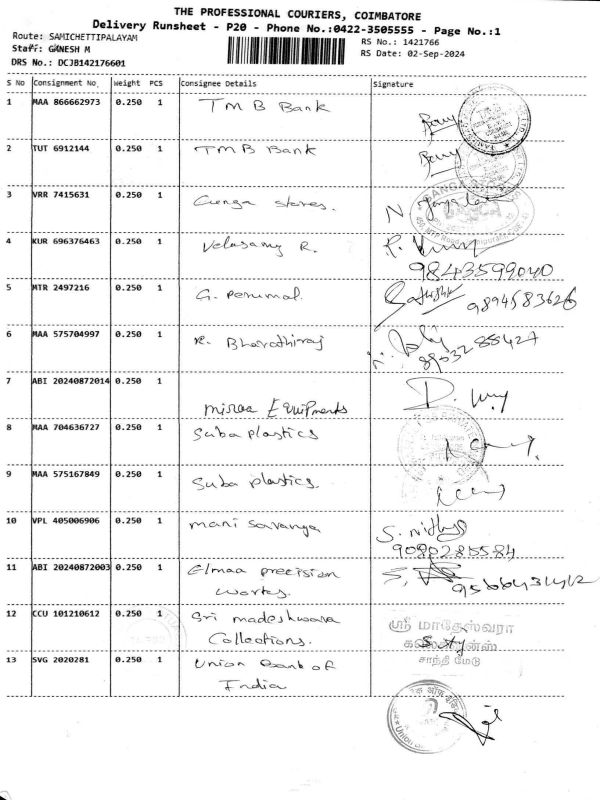 THE PROFESSIONAL COURIERS, COIMBATORE
Delivery Runsheet - P20 - Phone No.:0422-3505555 - Page No.:1
Route: SAMICHETTIPALAYAM
RS No.: 1421766
Staff: GANESH M
RS Date: 02-Sep-2024
DRS No.: DCJB142176601
S No Consignment No Weight PCS Consignee Details Signature
1 MAA 866662973 0.250 1 TMB Bank
2 TUT 6912144 0.250 1 TMB Bank
3 VRR 7415631 0.250 1 Gunga stores.
4 KUR 696376463 0.250 1 Velusamy R.
9843599040
5 MTR 2497216 0.250 1 G. Perumal. 9894583626
6 MAA 575704997 0.250 1 R. Bharathiraj
8903288427
7 ABI 20240872014 0.250 1
Miraa Equipments
8 MAA 704636727 0.250 1 Suba plastics
9 MAA 575167849 0.250 1 Suba plastics.
10 VPL 405006906 0.250 1 mani Savanga S. nidhya
9080285584
11 ABI 20240872003 0.250 1 Elmaa precision
works. 9566431412
12 CCU 101210612 0.250 1 Sri madeshwara ஸ்ரீ மாதேஸ்வரா
Collections. கலெக்ஷன்ஸ்
13 SVG 2020281 0.250 1 Union Bank of சாந்தி மேடு
India